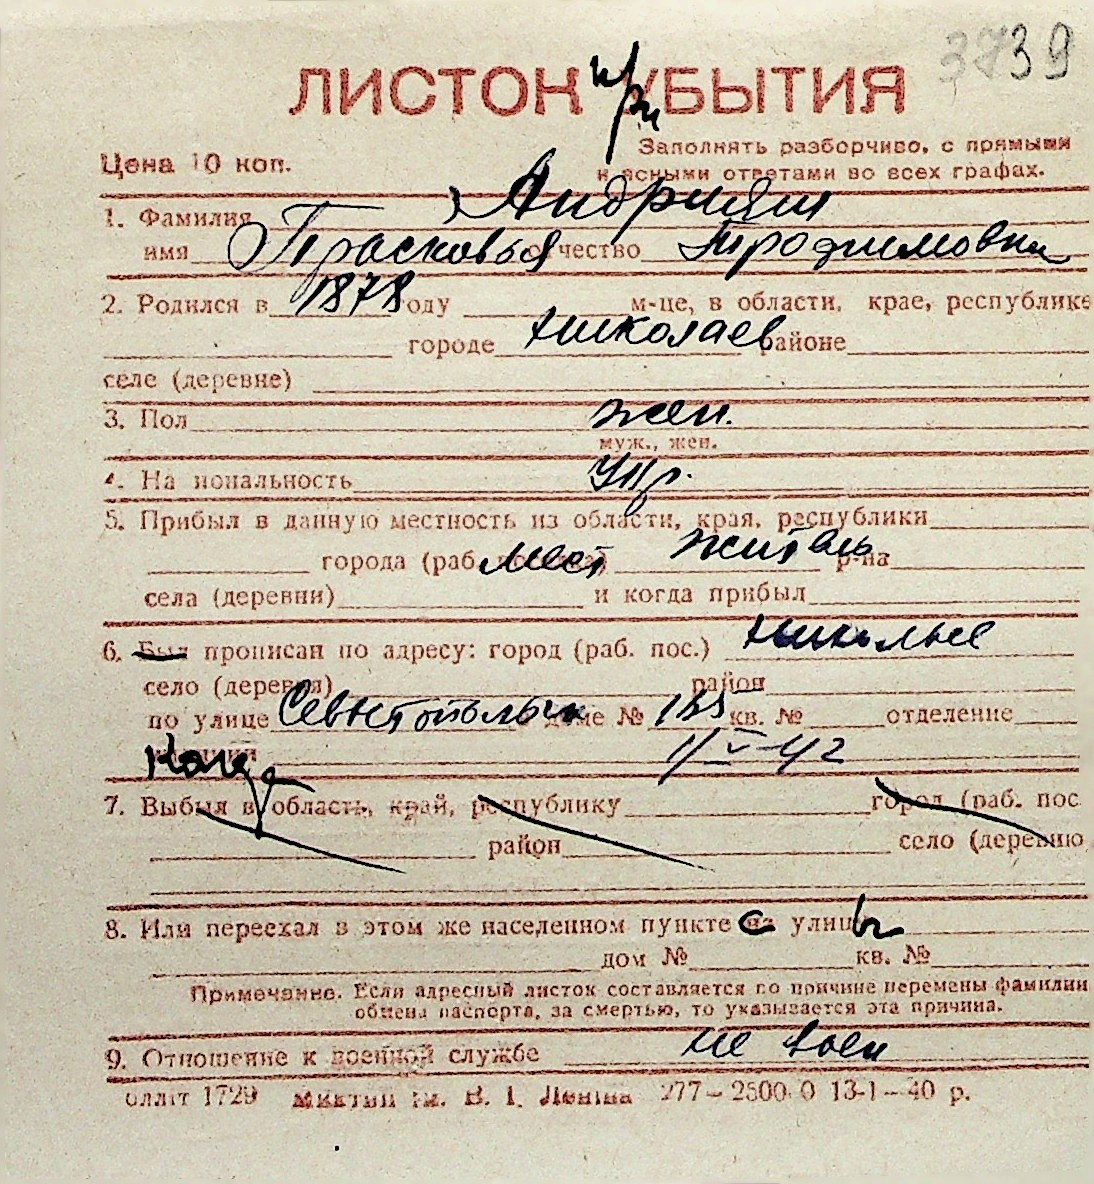 3739
ЛИСТОК при УБЫТИЯ
Цена 10 коп.
Заполнять разборчиво, с прямыми
и ясными ответами во всех графах.
1. Фамилия
имя Прасковья отчество Трофимовна
2. Родился в 1878 году м-це, в области, крае, республике
городе Николаев районе
селе (деревне)
3. Пол жен.
муж., жен.
4. Национальность Укр.
5. Прибыл в данную местность из области, края, республики
города (раб. мест житель р-на
села (деревни) и когда прибыл
6. Был прописан по адресу: город (раб. пос.)
село (деревня) район
по улице доме № кв. № отделение
Когда 1/V-42
7. Выбыл в область, край, республику город (раб. пос
район село (деревню
8. Или переехал в этом же населенном пункте с улицы
дом № кв. №
Примечание. Если адресный листок составляется по причине перемены фамилии
обмена паспорта, за смертью, то указывается эта причина.
9. Отношение к военной службе не воен
олліт 1729 ім. В. І. Леніна 277–2500 0 13-1–40 р.